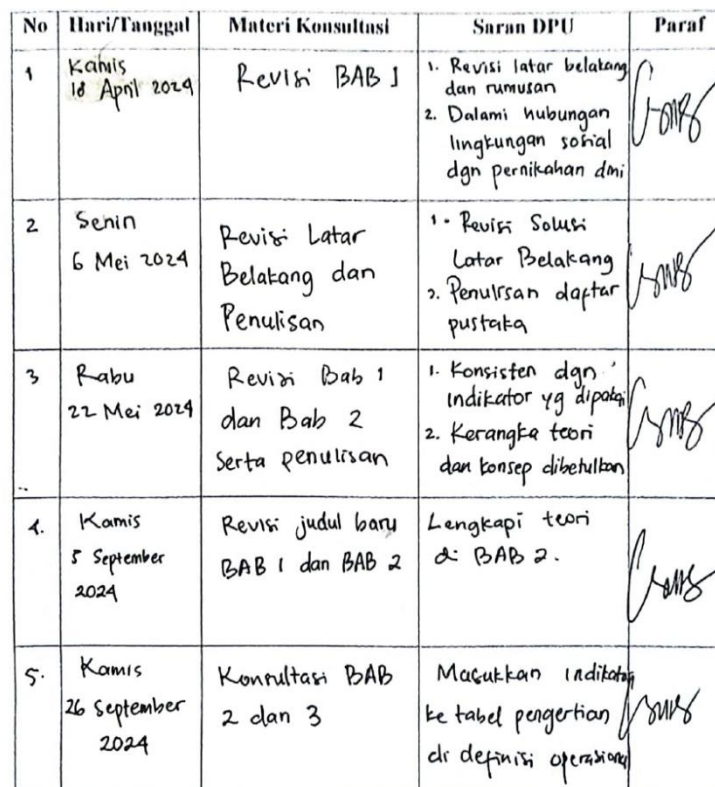 No Hari/Tanggal Materi Konsultasi Saran DPU Paraf
1
Kamis
18 April 2024
Revisi BAB 1
1. Revisi latar belakang
dan rumusan
2. Dalami hubungan
lingkungan sosial
dgn pernikahan dini
2
Senin
6 Mei 2024
Revisi Latar
Belakang dan
Penulisan
1. Revisi Solusi
Latar Belakang
2. Penulisan daftar
pustaka
3
Rabu
22 Mei 2024
Revisi Bab 1
dan Bab 2
serta penulisan
1. Konsisten dgn
indikator yg dipakai
2. Kerangka teori
dan konsep dibetulkan
4.
Kamis
5 September
2024
Revisi judul baru
BAB 1 dan BAB 2
Lengkapi teori
di BAB 2.
5.
Kamis
26 September
2024
Konsultasi BAB
2 dan 3
Masukkan indikator
ke tabel pengertian
di definisi operasional